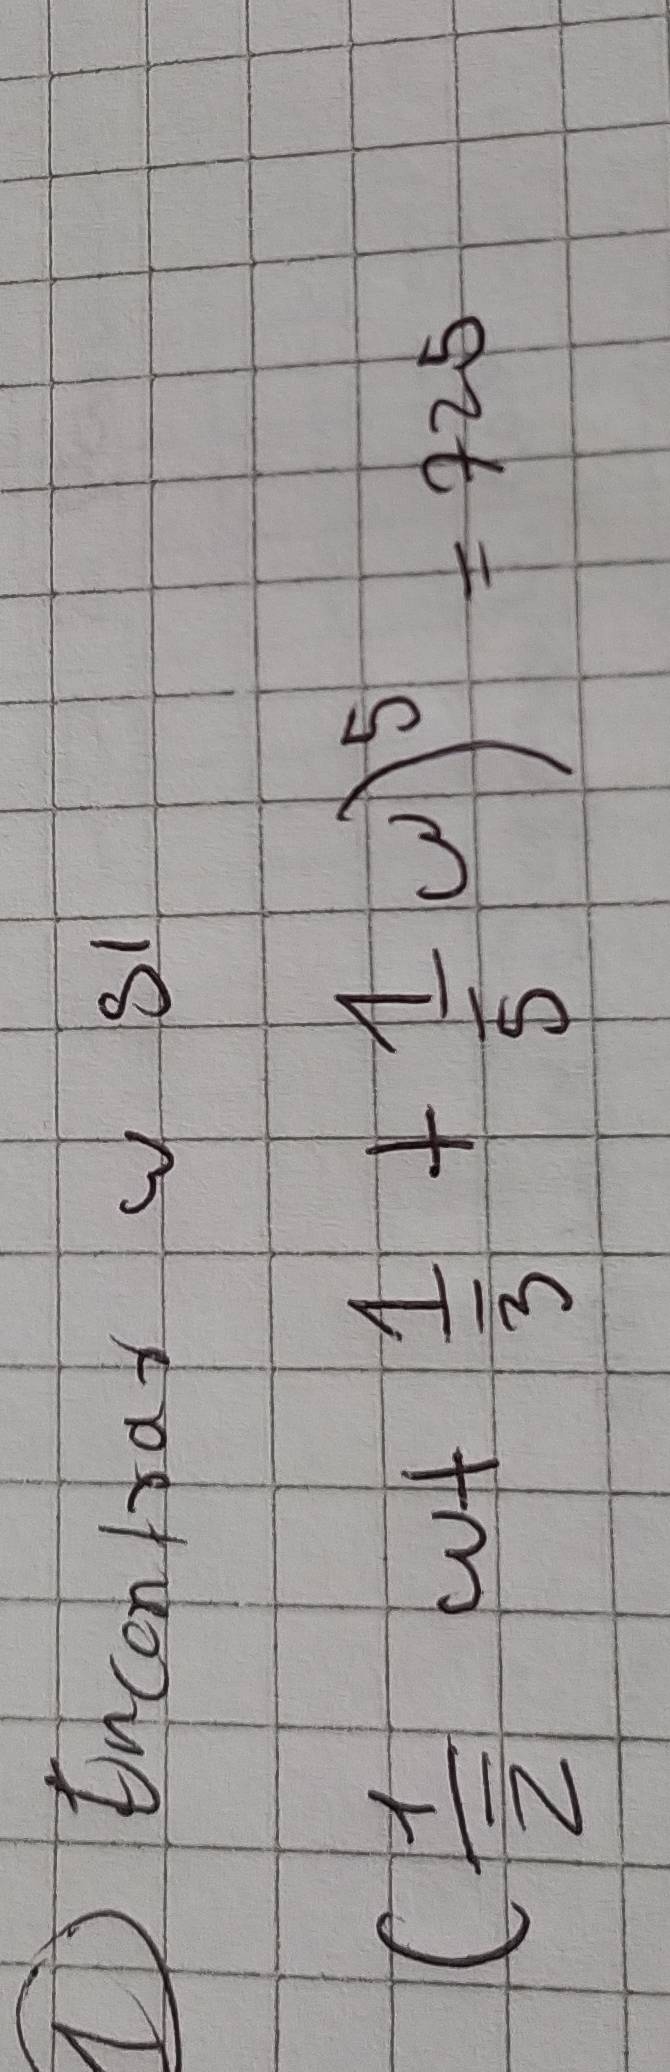 1 Encontrar w si
( 1/2 w + 1/3 + 1/5 w )^5 = 725